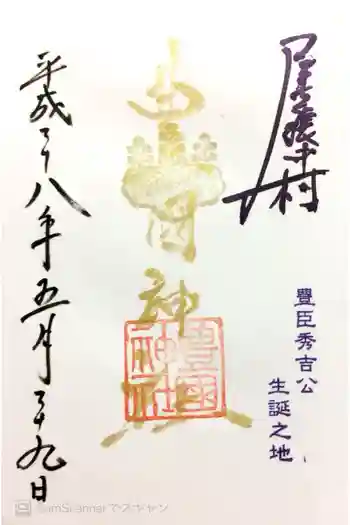 尾張中村
豐臣秀吉公
生誕之地
豊国神社
豊國神社
平成二十八年五月二十九日
CamScannerでスキャン